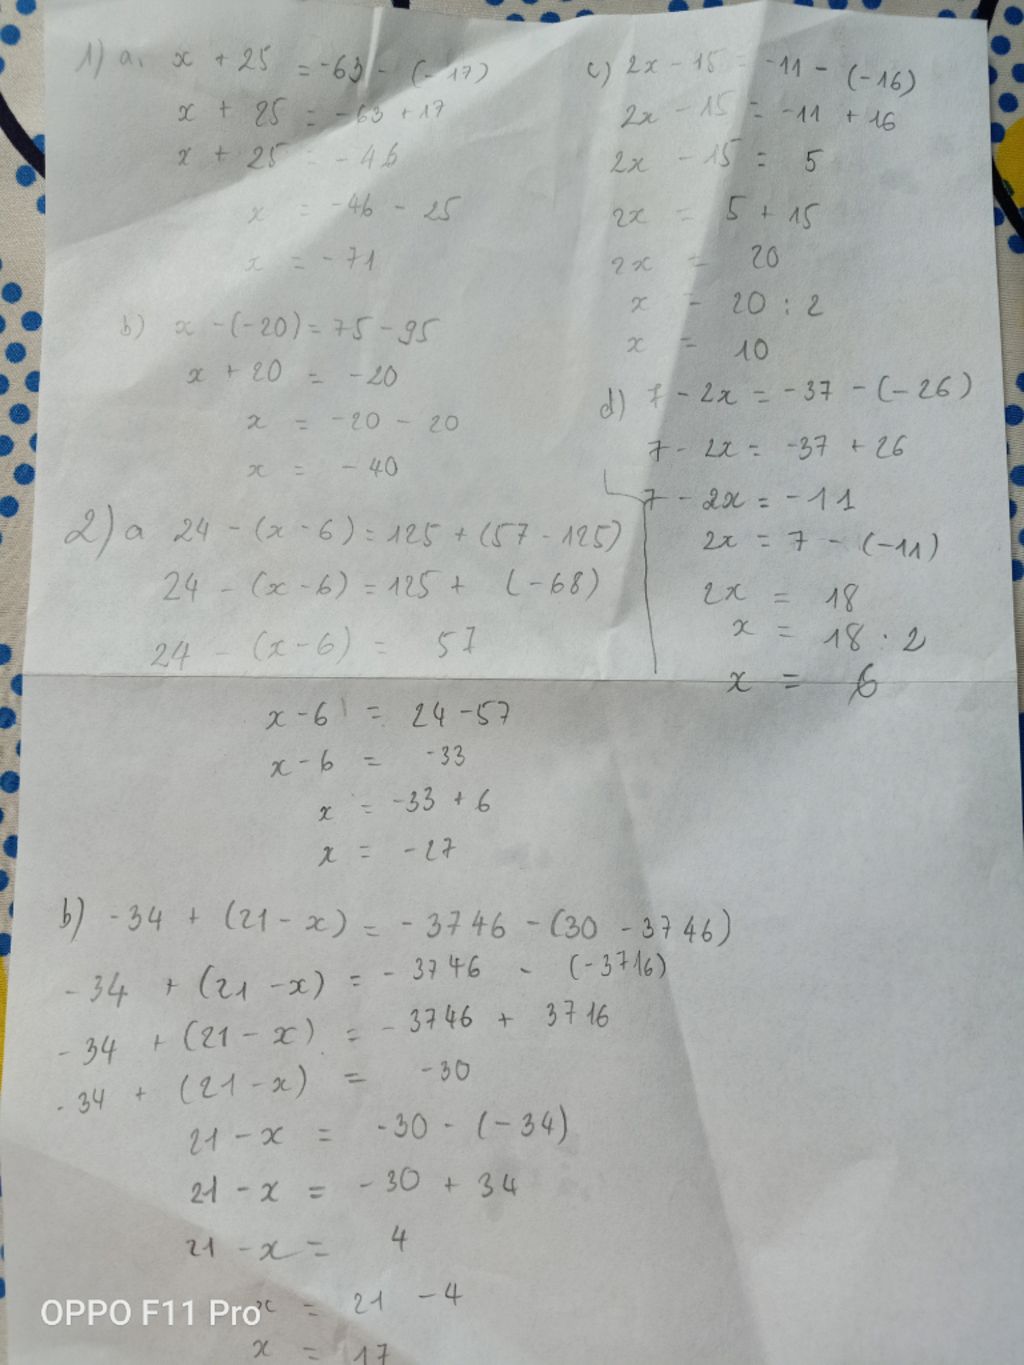 1) a. x + 25 = -63 - (-17)
x + 25 = -63 + 17
x + 25 = -46
x = -46 - 25
x = -71
b) x - (-20) = 75 - 95
x + 20 = -20
x = -20 - 20
x = -40
c) 2x - 15 = -11 - (-16)
2x - 15 = -11 + 16
2x - 15 = 5
2x = 5 + 15
2x = 20
x = 20 : 2
x = 10
d) 7 - 2x = -37 - (-26)
7 - 2x = -37 + 26
7 - 2x = -11
2x = 7 - (-11)
2x = 18
x = 18 : 2
x = 6
2) a 24 - (x - 6) = 125 + (57 - 125)
24 - (x - 6) = 125 + (-68)
24 - (x - 6) = 57
x - 6 = 24 - 57
x - 6 = -33
x = -33 + 6
x = -27
b) -34 + (21 - x) = -3746 - (30 - 3746)
-34 + (21 - x) = -3746 - (-3716)
-34 + (21 - x) = -3746 + 3716
-34 + (21 - x) = -30
21 - x = -30 - (-34)
21 - x = -30 + 34
21 - x = 4
x = 21 - 4
x = 17
OPPO F11 Pro